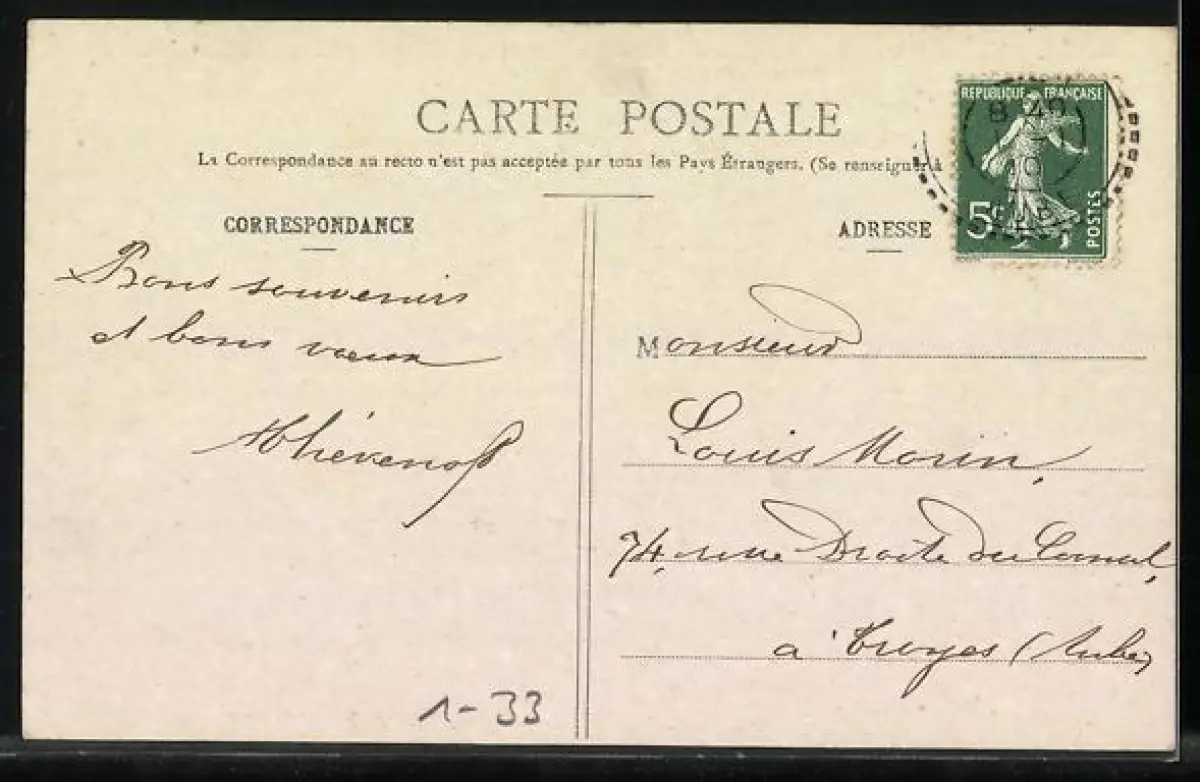 CARTE POSTALE
La Correspondance au recto n'est pas acceptée par tous les Pays Étrangers. (Se renseigner à
REPUBLIQUE FRANÇAISE
8 40
10
5c
POSTES
CORRESPONDANCE
ADRESSE
Bons souvenirs
et bons vœux
Monsieur
Louis Morin,
74, rue Droite du Canal,
à Troyes (Aube)
1-33